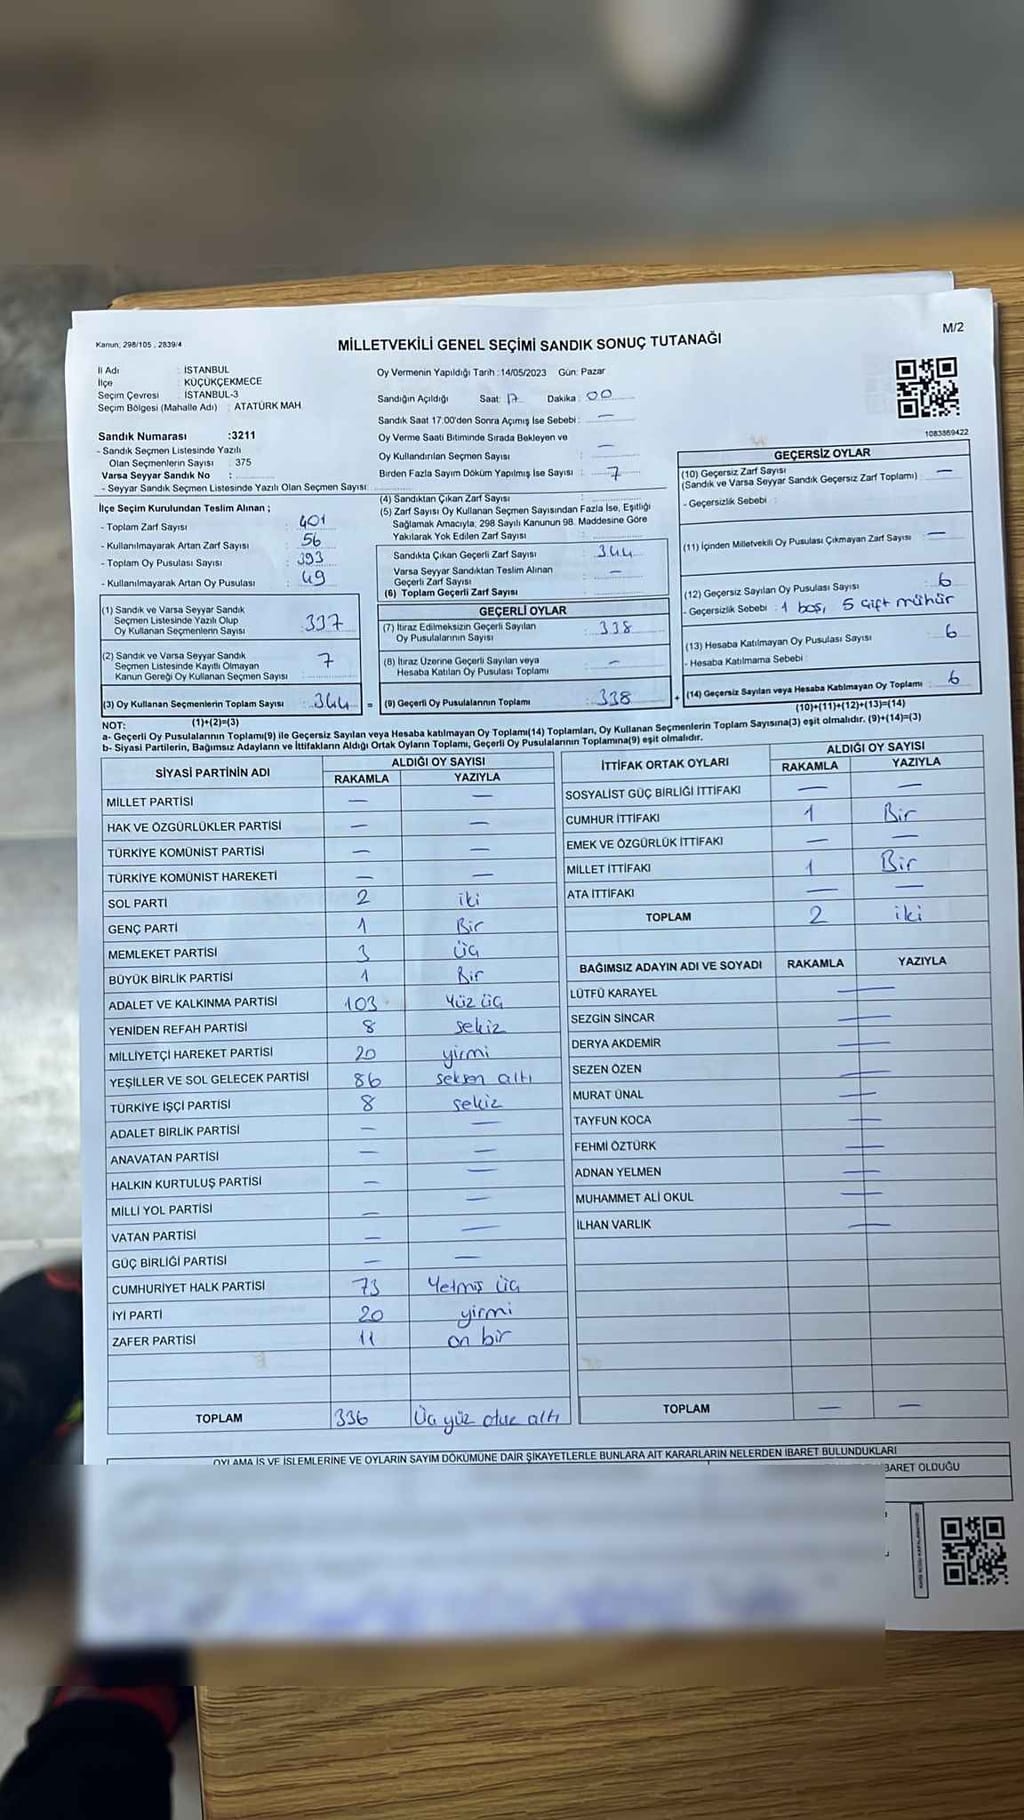 M/2
Kanun; 298/105 , 2839/4
MİLLETVEKİLİ GENEL SEÇİMİ SANDIK SONUÇ TUTANAĞI
İl Adı : İSTANBUL
İlçe : KÜÇÜKÇEKMECE
Seçim Çevresi : İSTANBUL-3
Seçim Bölgesi (Mahalle Adı) : ATATÜRK MAH
Sandık Numarası :3211
- Sandık Seçmen Listesinde Yazılı
Olan Seçmenlerin Sayısı : 375
Varsa Seyyar Sandık No :
- Seyyar Sandık Seçmen Listesinde Yazılı Olan Seçmen Sayısı:
Oy Vermenin Yapıldığı Tarih :14/05/2023 Gün: Pazar
Sandığın Açıldığı Saat: 17 Dakika: 00
Sandık Saat 17:00'den Sonra Açımış İse Sebebi : —
Oy Verme Saati Bitiminde Sırada Bekleyen ve
Oy Kullandırılan Seçmen Sayısı : —
Birden Fazla Sayım Döküm Yapılmış İse Sayısı : 7
1083869422
İlçe Seçim Kurulundan Teslim Alınan ;
- Toplam Zarf Sayısı : 401
- Kullanılmayarak Artan Zarf Sayısı : 56
- Toplam Oy Pusulası Sayısı : 393
- Kullanılmayarak Artan Oy Pusulası : 49
(1) Sandık ve Varsa Seyyar Sandık
Seçmen Listesinde Yazılı Olup
Oy Kullanan Seçmenlerin Sayısı : 337
(2) Sandık ve Varsa Seyyar Sandık
Seçmen Listesinde Kayıtlı Olmayan
Kanun Gereği Oy Kullanan Seçmen Sayısı : 7
(3) Oy Kullanan Seçmenlerin Toplam Sayısı : 344 =
(1)+(2)=(3)
(4) Sandıktan Çıkan Zarf Sayısı :
(5) Zarf Sayısı Oy Kullanan Seçmen Sayısından Fazla İse, Eşitliği
Sağlamak Amacıyla, 298 Sayılı Kanunun 98. Maddesine Göre
Yakılarak Yok Edilen Zarf Sayısı :
Sandıkta Çıkan Geçerli Zarf Sayısı : 344
Varsa Seyyar Sandıktan Teslim Alınan
Geçerli Zarf Sayısı : —
(6) Toplam Geçerli Zarf Sayısı :
GEÇERLİ OYLAR
(7) İtiraz Edilmeksizin Geçerli Sayılan
Oy Pusulalarının Sayısı : 338
(8) İtiraz Üzerine Geçerli Sayılan veya
Hesaba Katılan Oy Pusulası Toplamı : —
(9) Geçerli Oy Pusulalarının Toplamı : 338 +
GEÇERSİZ OYLAR
(10) Geçersiz Zarf Sayısı : —
(Sandık ve Varsa Seyyar Sandık Geçersiz Zarf Toplamı)
- Geçersizlik Sebebi :
(11) İçinden Milletvekili Oy Pusulası Çıkmayan Zarf Sayısı : —
(12) Geçersiz Sayılan Oy Pusulası Sayısı : 6
- Geçersizlik Sebebi : 1 boş, 5 çift mühür
(13) Hesaba Katılmayan Oy Pusulası Sayısı : 6
- Hesaba Katılmama Sebebi :
(14) Geçersiz Sayılan veya Hesaba Katılmayan Oy Toplamı : 6
(10)+(11)+(12)+(13)=(14)
NOT:
a- Geçerli Oy Pusulalarının Toplamı(9) ile Geçersiz Sayılan veya Hesaba katılmayan Oy Toplamı(14) Toplamları, Oy Kullanan Seçmenlerin Toplam Sayısına(3) eşit olmalıdır. (9)+(14)=(3)
b- Siyasi Partilerin, Bağımsız Adayların ve İttifakların Aldığı Ortak Oyların Toplamı, Geçerli Oy Pusulalarının Toplamına(9) eşit olmalıdır.
SİYASİ PARTİNİN ADI ALDIĞI OY SAYISI
RAKAMLA YAZIYLA
MİLLET PARTİSİ — —
HAK VE ÖZGÜRLÜKLER PARTİSİ — —
TÜRKİYE KOMÜNİST PARTİSİ — —
TÜRKİYE KOMÜNİST HAREKETİ — —
SOL PARTİ 2 iki
GENÇ PARTİ 1 Bir
MEMLEKET PARTİSİ 3 üç
BÜYÜK BİRLİK PARTİSİ 1 Bir
ADALET VE KALKINMA PARTİSİ 103 Yüz üç
YENİDEN REFAH PARTİSİ 8 sekiz
MİLLİYETÇİ HAREKET PARTİSİ 20 yirmi
YEŞİLLER VE SOL GELECEK PARTİSİ 86 seksen altı
TÜRKİYE İŞÇİ PARTİSİ 8 sekiz
ADALET BİRLİK PARTİSİ — —
ANAVATAN PARTİSİ — —
HALKIN KURTULUŞ PARTİSİ — —
MİLLİ YOL PARTİSİ — —
VATAN PARTİSİ — —
GÜÇ BİRLİĞİ PARTİSİ — —
CUMHURİYET HALK PARTİSİ 73 Yetmiş üç
İYİ PARTİ 20 yirmi
ZAFER PARTİSİ 11 on bir
TOPLAM 336 Üç yüz otuz altı
İTTİFAK ORTAK OYLARI ALDIĞI OY SAYISI
RAKAMLA YAZIYLA
SOSYALİST GÜÇ BİRLİĞİ İTTİFAKI — —
CUMHUR İTTİFAKI 1 Bir
EMEK VE ÖZGÜRLÜK İTTİFAKI — —
MİLLET İTTİFAKI 1 Bir
ATA İTTİFAKI — —
TOPLAM 2 iki
BAĞIMSIZ ADAYIN ADI VE SOYADI RAKAMLA YAZIYLA
LÜTFÜ KARAYEL —
SEZGİN SİNCAR —
DERYA AKDEMİR —
SEZEN ÖZEN —
MURAT ÜNAL —
TAYFUN KOCA —
FEHMİ ÖZTÜRK —
ADNAN YELMEN —
MUHAMMET ALİ OKUL —
İLHAN VARLIK —
TOPLAM — —
OYLAMA İŞ VE İŞLEMLERİNE VE OYLARIN SAYIM DÖKÜMÜNE DAİR ŞİKAYETLERLE BUNLARA AİT KARARLARIN NELERDEN İBARET BULUNDUKLARI
BARET OLDUĞU